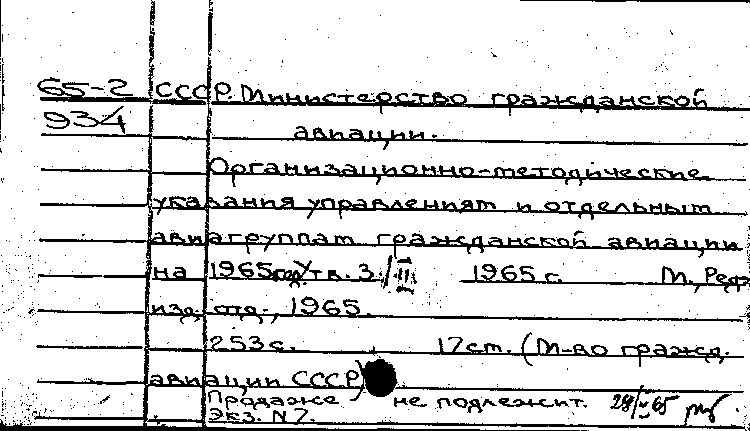 65-2 СССР. Министерство гражданской
934 авиации.
Организационно-методические
указания управлениям и отдельным
авиагруппам гражданской авиации
на 1965 год. Утв. 3./III 1965 г. М., Ред.-
изд. отд., 1965.
253 с. 17 см. (М-во гражд.
авиации СССР)
Продаже не подлежит. 28/V 65
Экз. N 7.